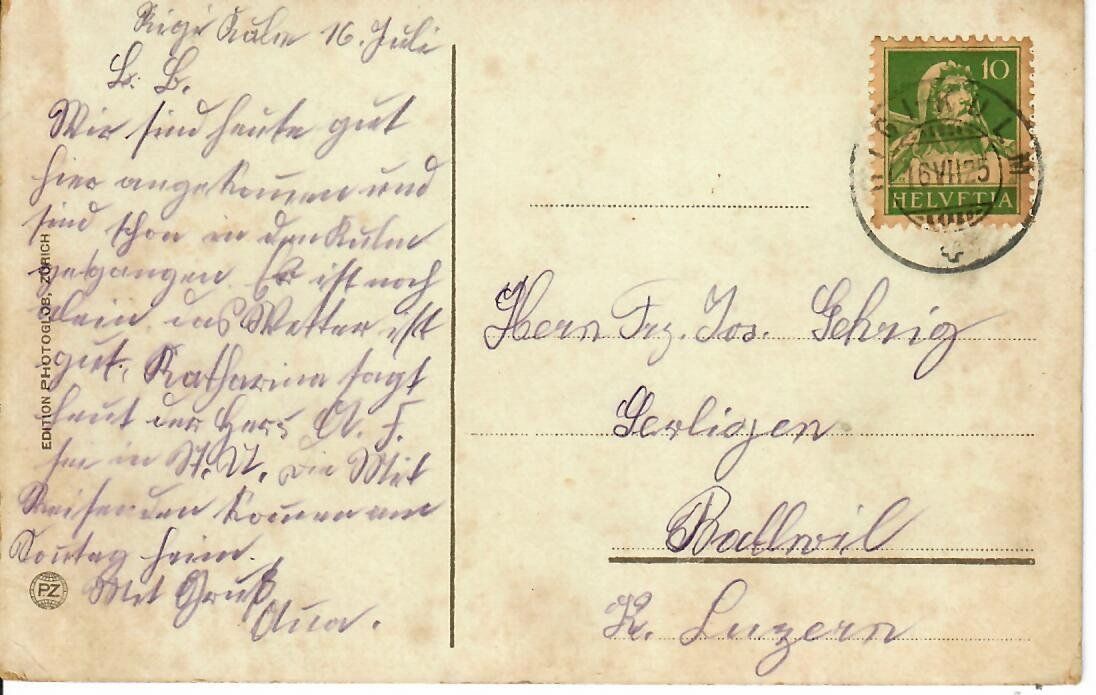 Rigi Kulm 16. Juli
L. B.
Wir sind heute gut
hier angekomen und
sind schon in den Kulm
gegangen. Es ist noch
klein. das Wetter ist
gut, Katharina sagt
heut der Herr A. F.
sei in St. U. die Mit
Reisenden komen am
Sontag heim.
Mit Gruß
Anna.
EDITION PHOTOGLOB, ZÜRICH
PZ
10
HELVETIA
RIGI KULM
16 VII 25
Herrn Frz. Jos. Gehrig
Gerligen
Ballwil
K. Luzern